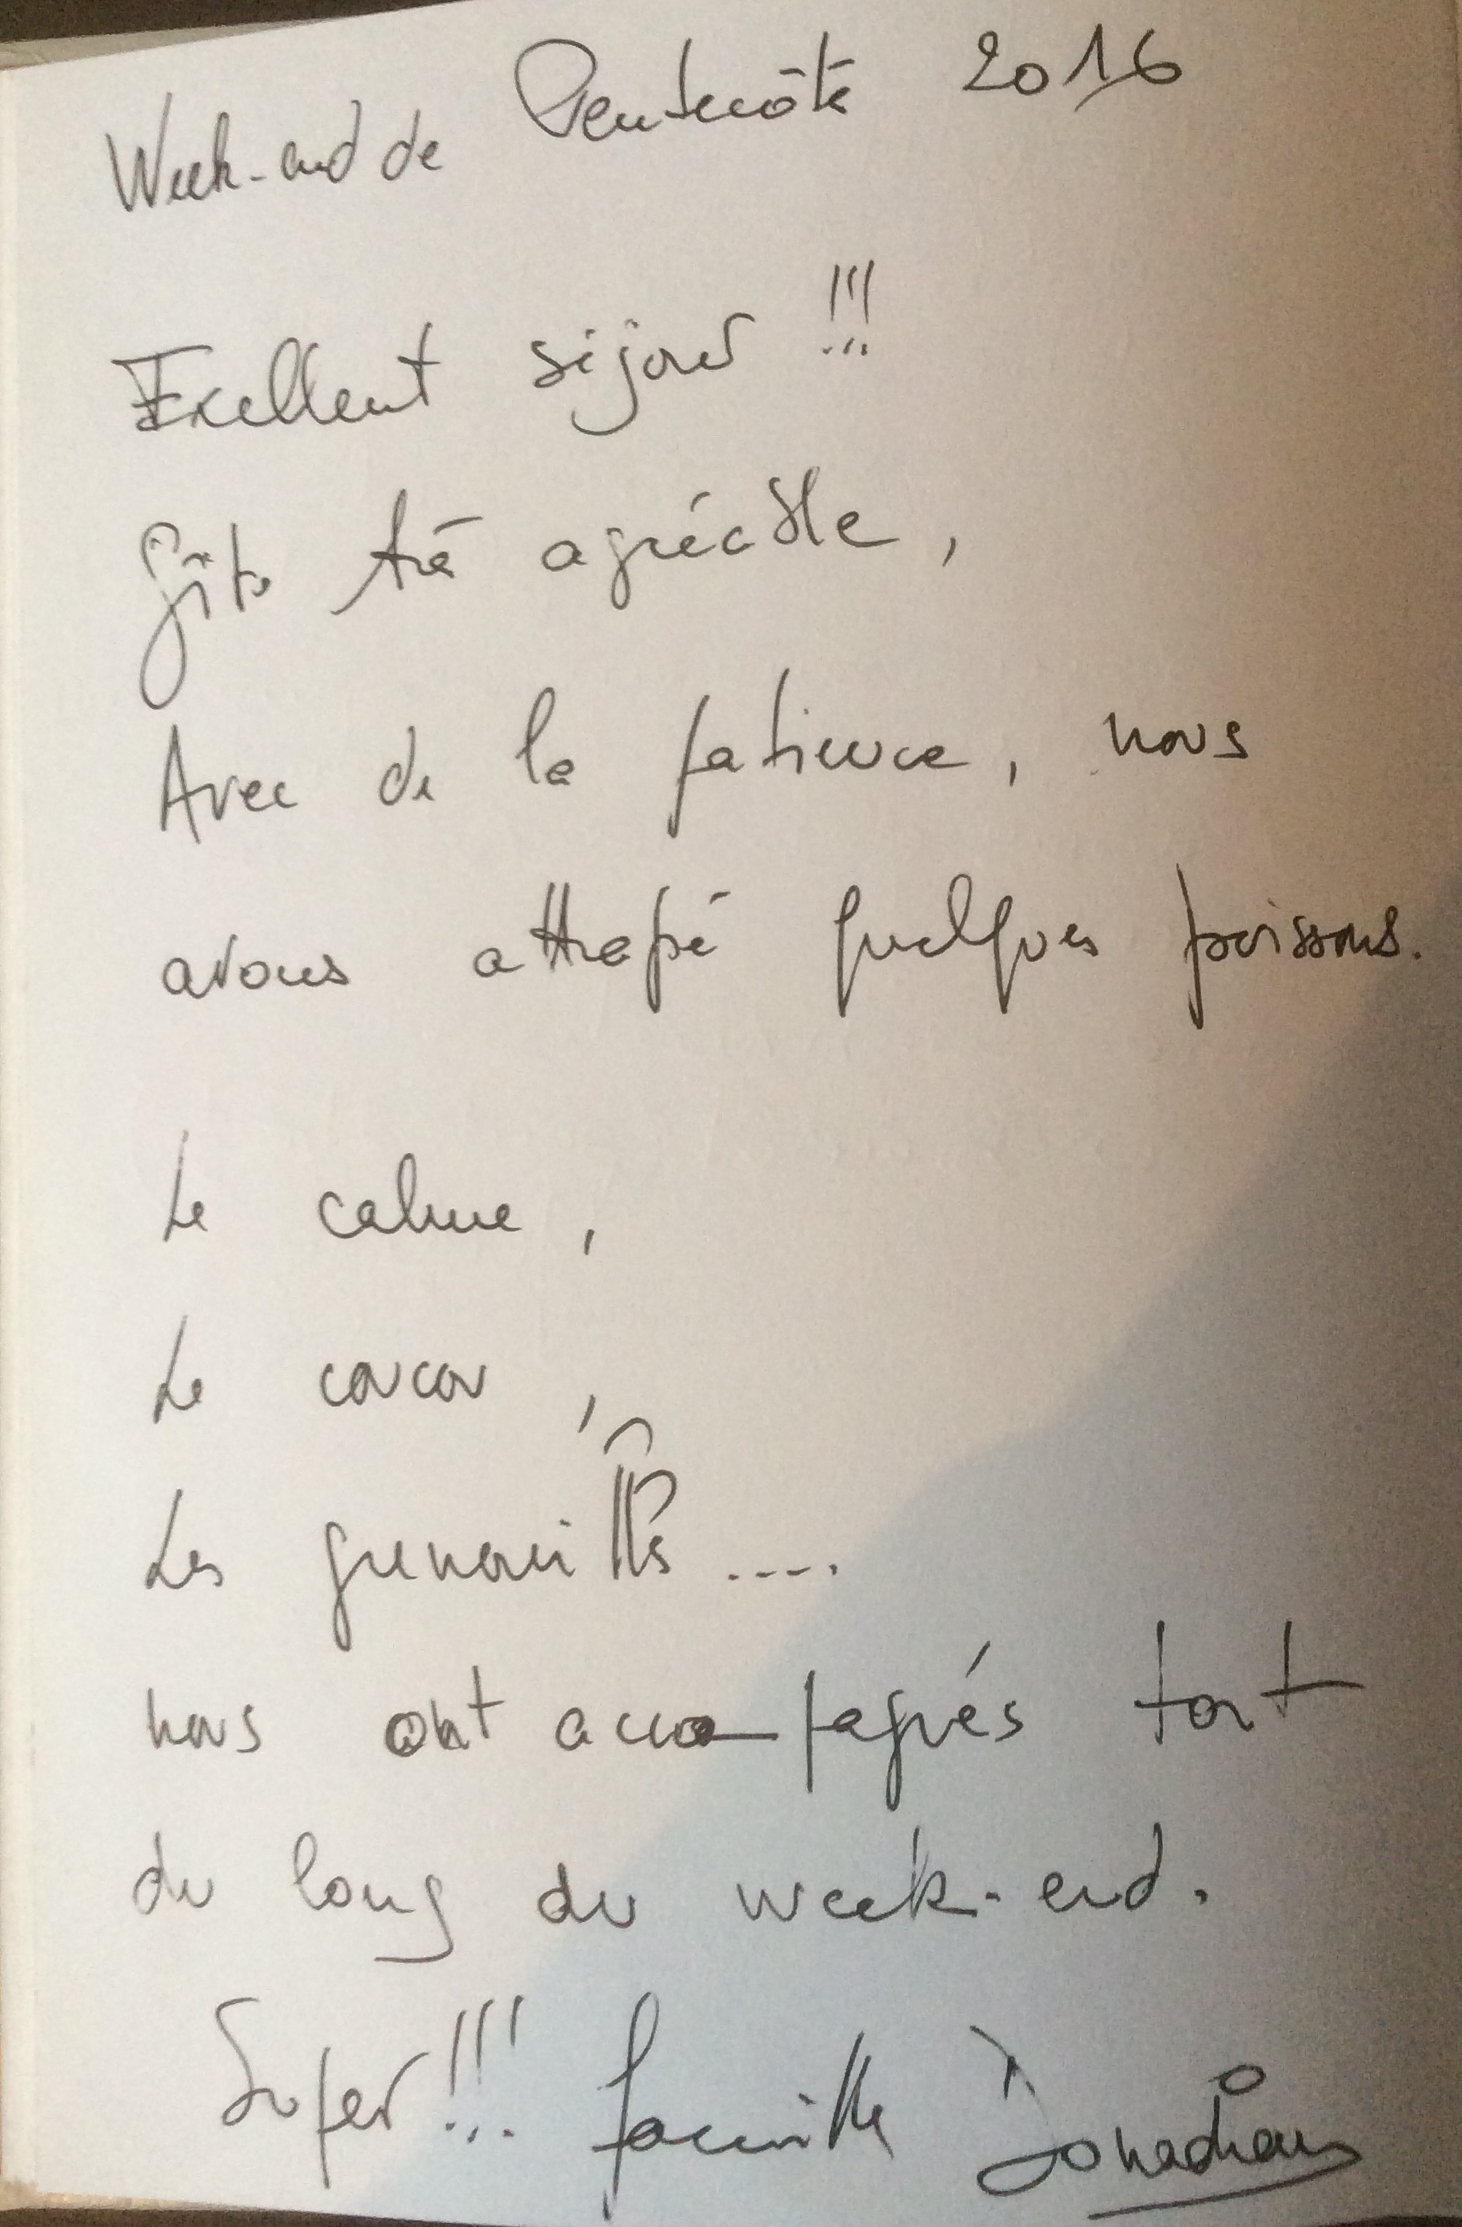 Week-end de Pentecôte 2016
Exellent séjour !!!
Gîte très agréable,
Avec de la patience, nous
avons attrapé quelques poissons.
Le calme,
Le coucou,
Les grenouilles ....
nous ont accompagnés tout
du long du week-end.
Super!!! famille